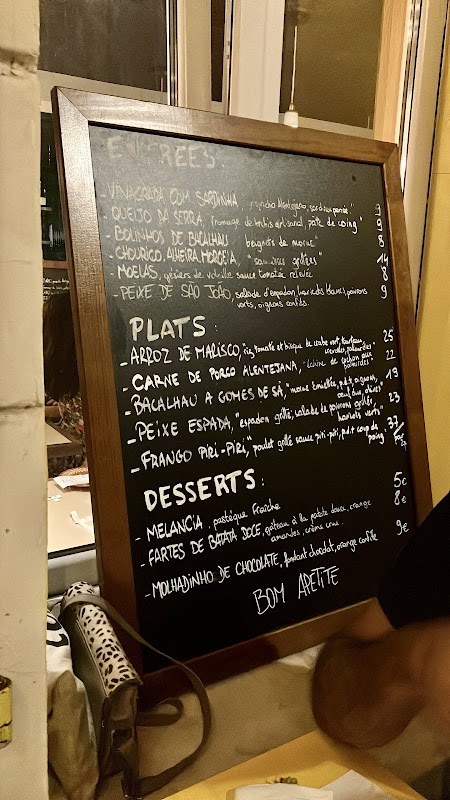 ENTREES:
- VINAGRADA COM SARDINHA, "gaspacho Alentejano, sardines panée" 9
- QUEIJO DA SERRA, fromage de brebis artisanal, pâte de coing" 9
- BOLINHOS DE BACALHAU "beignets de morue" 8
- CHOURICO, ALHEIRA MORCELA, "saucisses grillées" 14
- MOELAS, gésiers de volaille sauce tomatée relevée 8
- PEIXE DE SAO JOAO, salade d'espadon, haricots blancs, poivrons 9
verts, oignons confits.
PLATS:
- ARROZ DE MARISCO, riz, tomate et bisque de crabe vert, 25
crevettes, palourdes"
- CARNE DE PORCO ALENTEJANA, "échine de cochon aux 22
palourdes"
- BACALHAU A GOMES DE SÁ, "morue émiettée, p.d.t, oignons, 19
oeuf dur, olives"
- PEIXE ESPADA, "espadon grillé, salade de poivrons grillés, 23
haricots verts"
- FRANGO PIRI-PIRI, "poulet grillé sauce piri-piri, p.d.t coup de 37/
poing
DESSERTS:
- MELANCIA, pastèque fraîche 5€
- FARTES DE BATATA DOCE, gateau à la patate douce, orange 8€
amandes, crème crue.
- MOLHADINHO DE CHOCOLATE, fondant chocolat, orange confite 9€
BOM APETITE